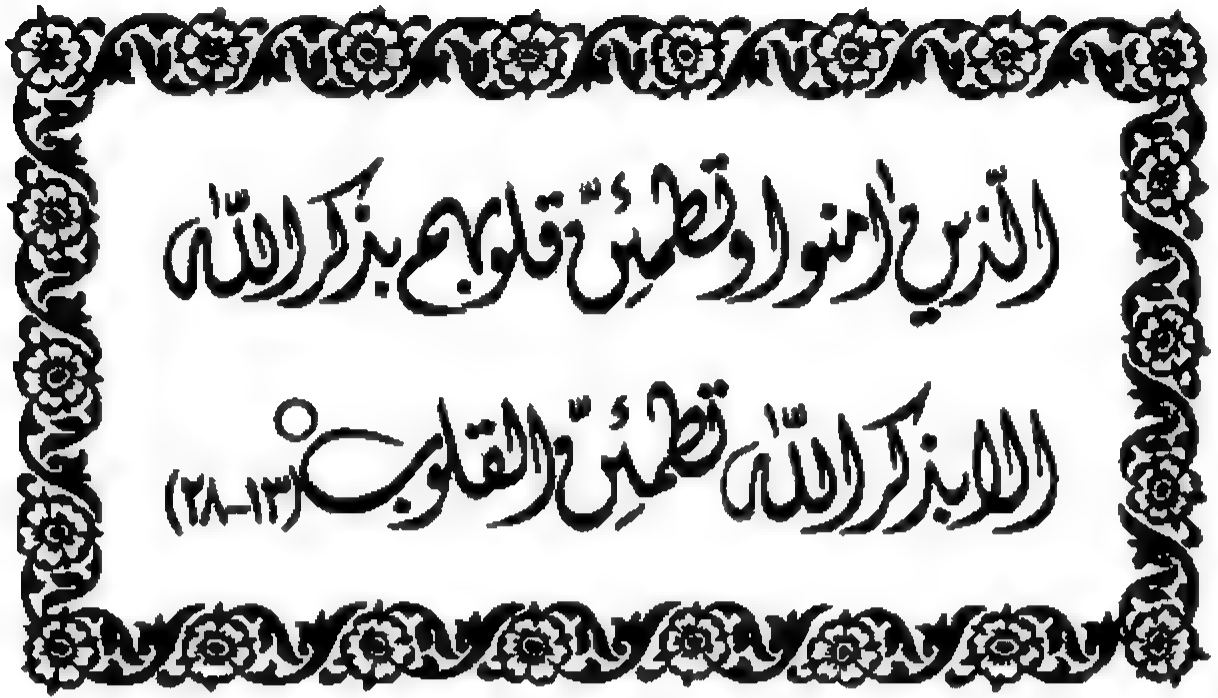 الّذين اٰمنوا وتطمئِنّ قلوبهم بذكر اللّٰه
الا بذكر اللّٰه تطمئِنّ القلوب ○ (١٣-٢٨)